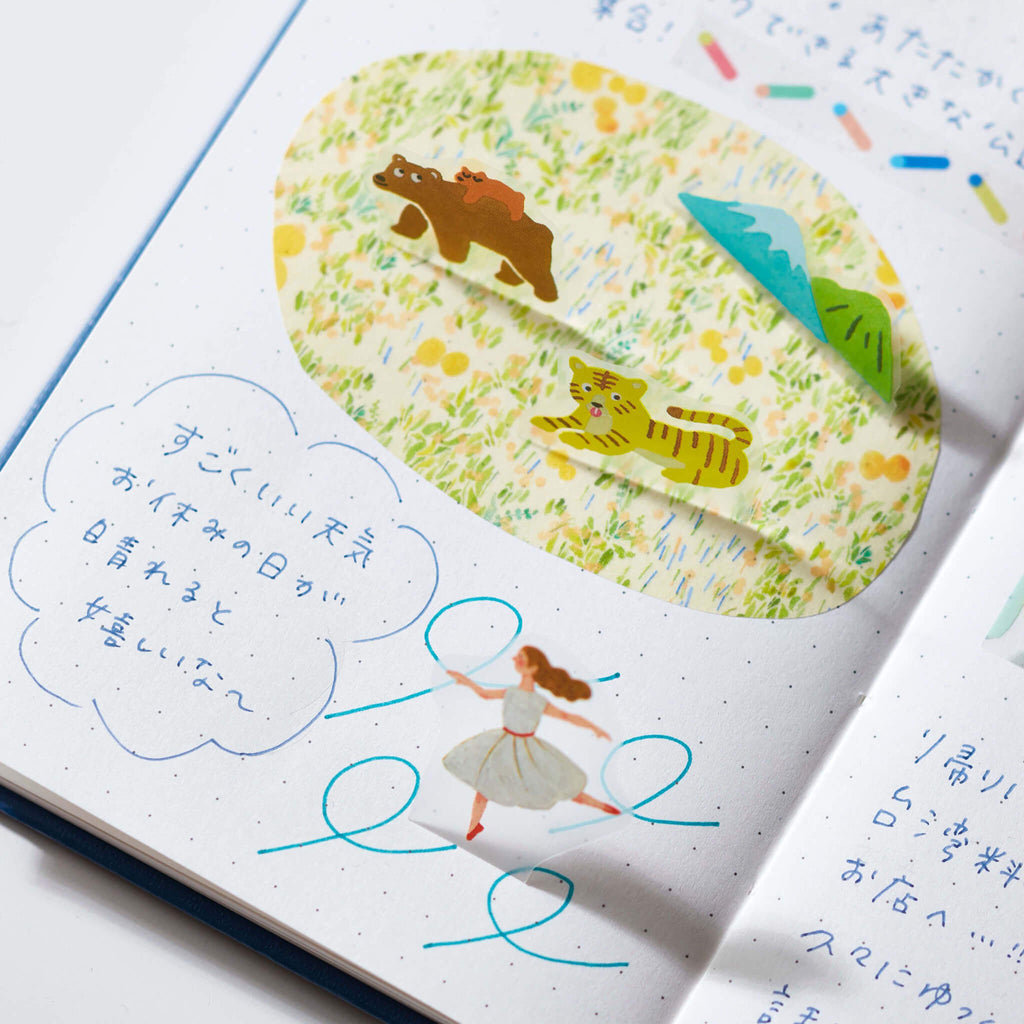 あたたかく
できる大きな公
集合！
すごくいい天気
お休みの日が
晴れると
嬉しいな〜
り帰りに
台湾料
お店へ…!!
久々にゆっ
話